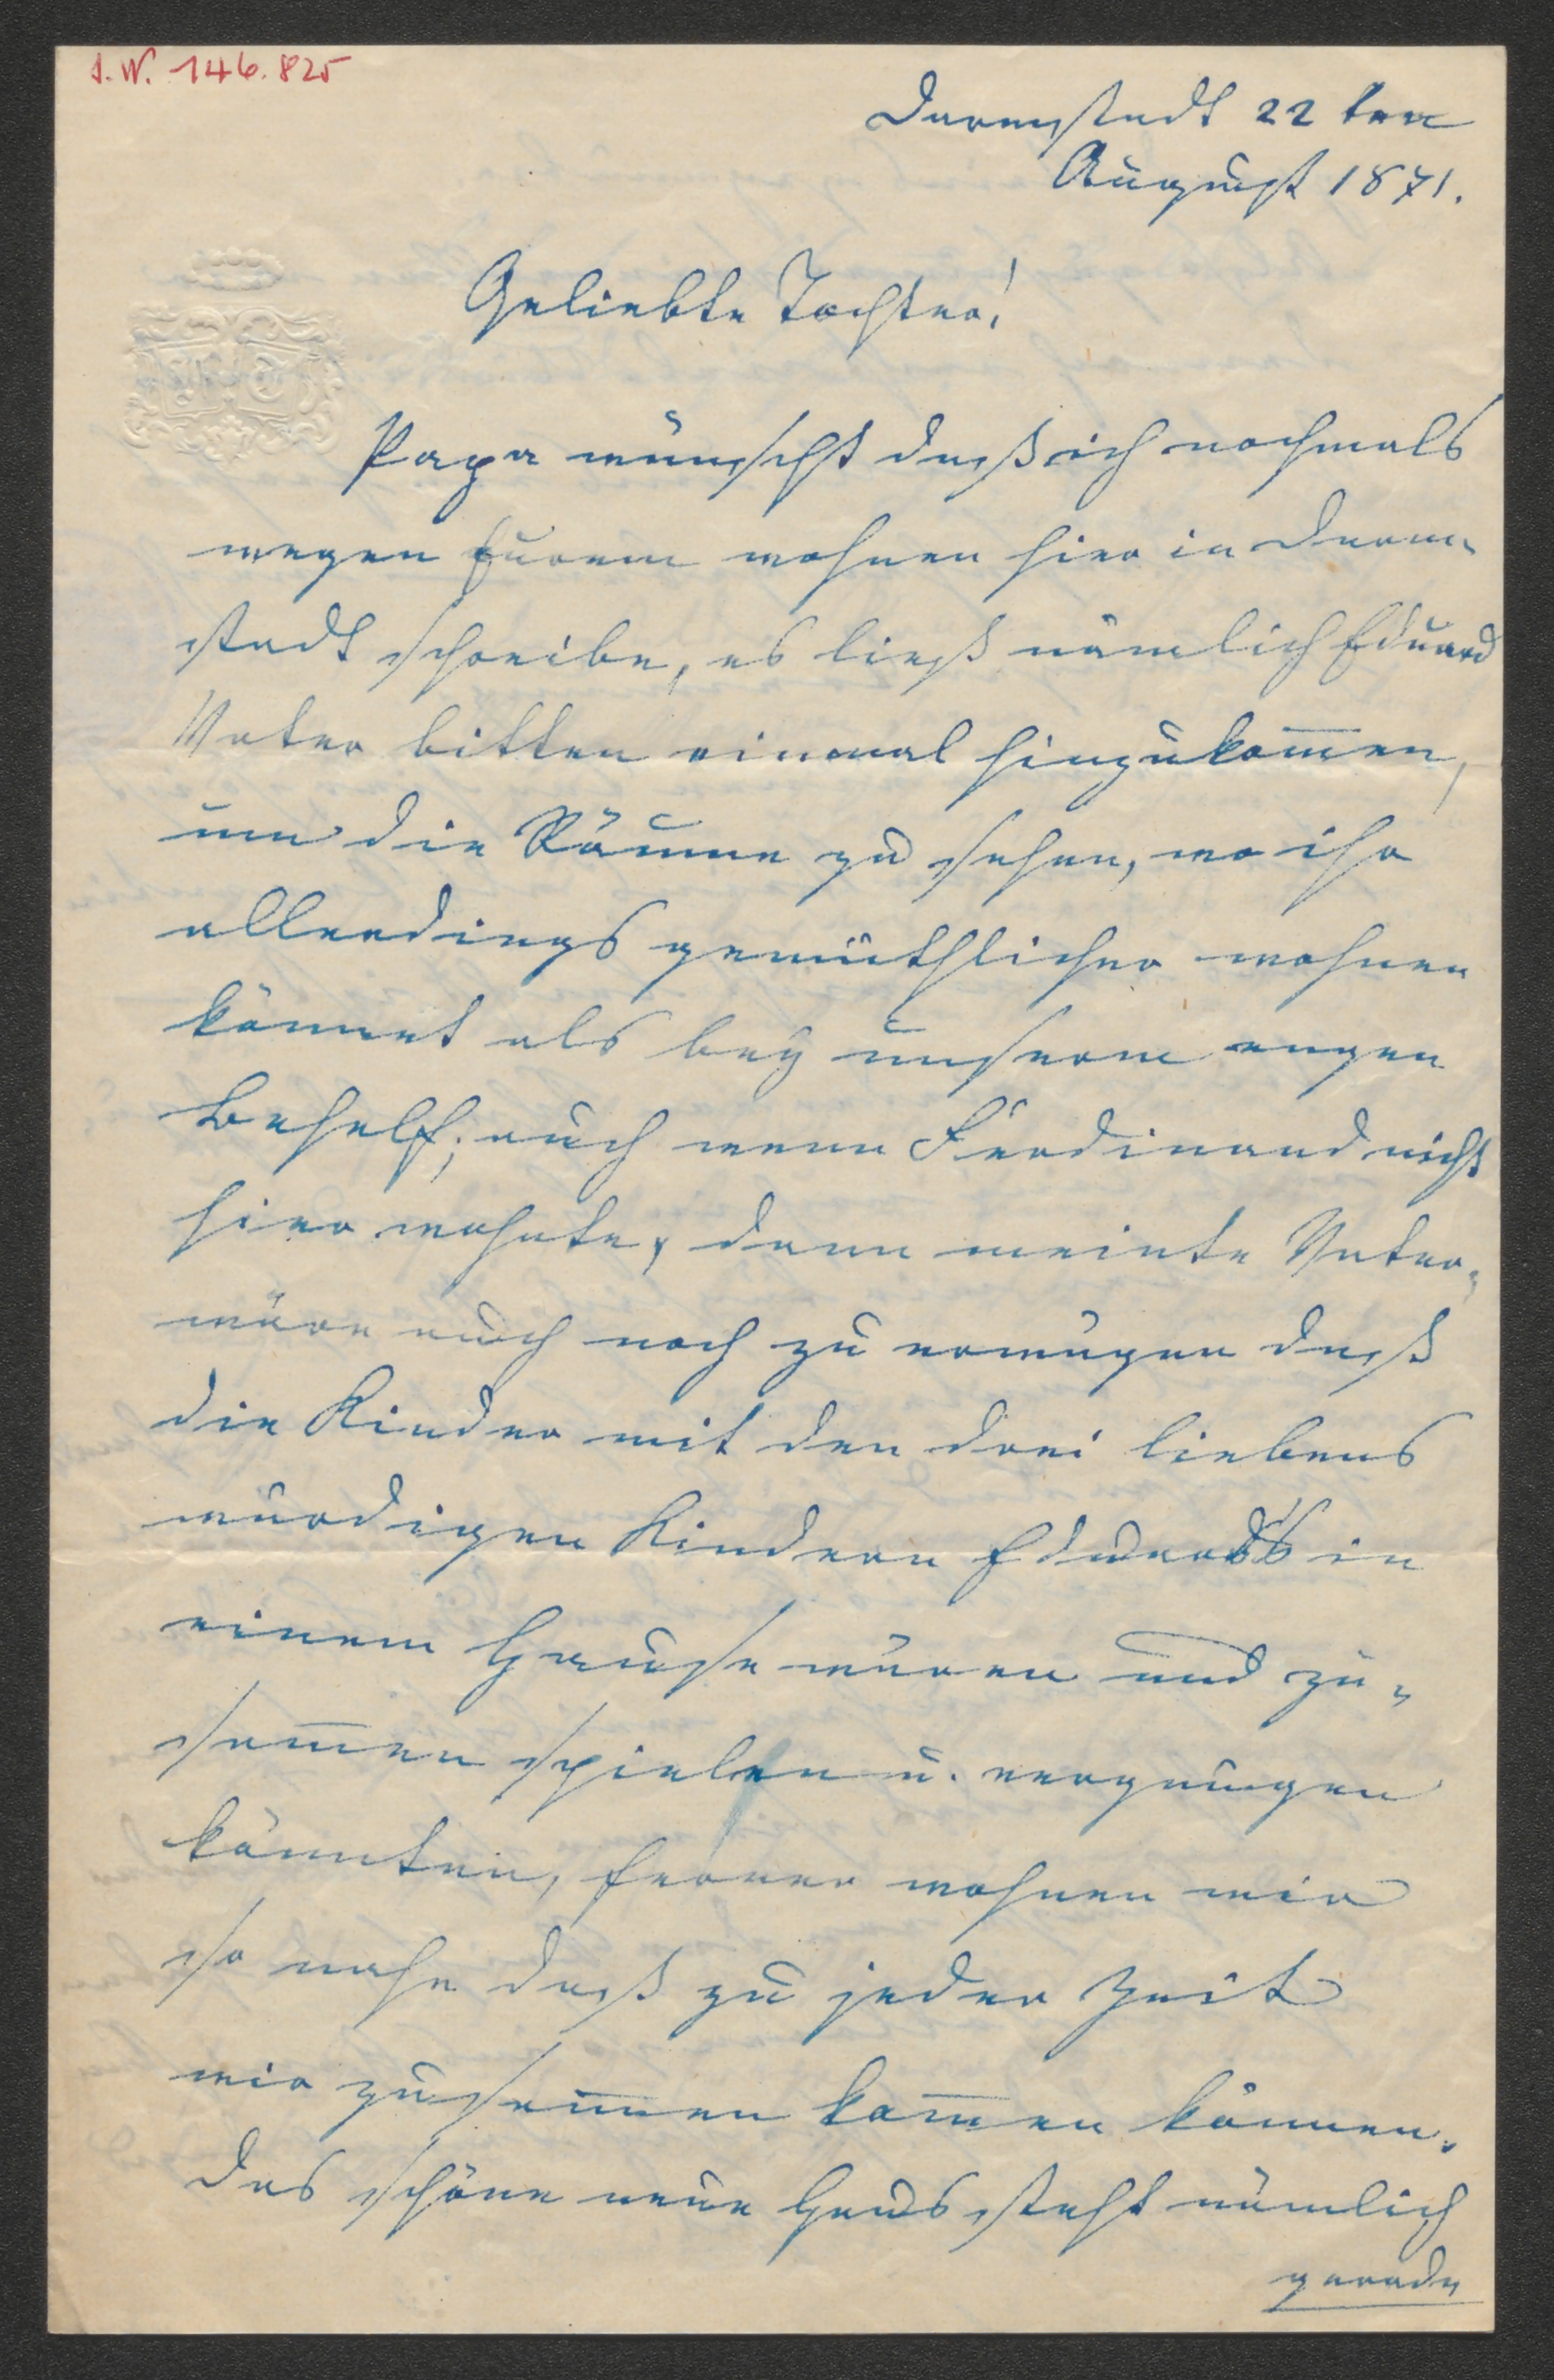 I.N. 146.825
Darmstadt 22 ten
August 1871.
Geliebte Tochter!
Papa wünscht daß ich nochmals
wegen Eurem wohnen hier in Darm-
stadt schreibe, es ließ nämlich Eduard
Vater bitten einmal hinzukom̅en,
um die Räume zu sehen, wo ihr
allerdings gemüthlicher wohnen
könnet als bey unserm engen
Behelf; auch wenn Ferdinand nicht
hier wohnte, dann meinte Vater,
wäre auch noch zu erwägen daß
die Kinder mit den drei liebens
würdigen Kindern Eduard's in
einem Hause wären und zu-
sam̅en spielen u. vergnügen
könnten, ferner wohnen wir
so nahe daß zu jeder Zeit
wir zusam̅en kom̅en können.
Das schöne neue Haus steht nämlich
gerade